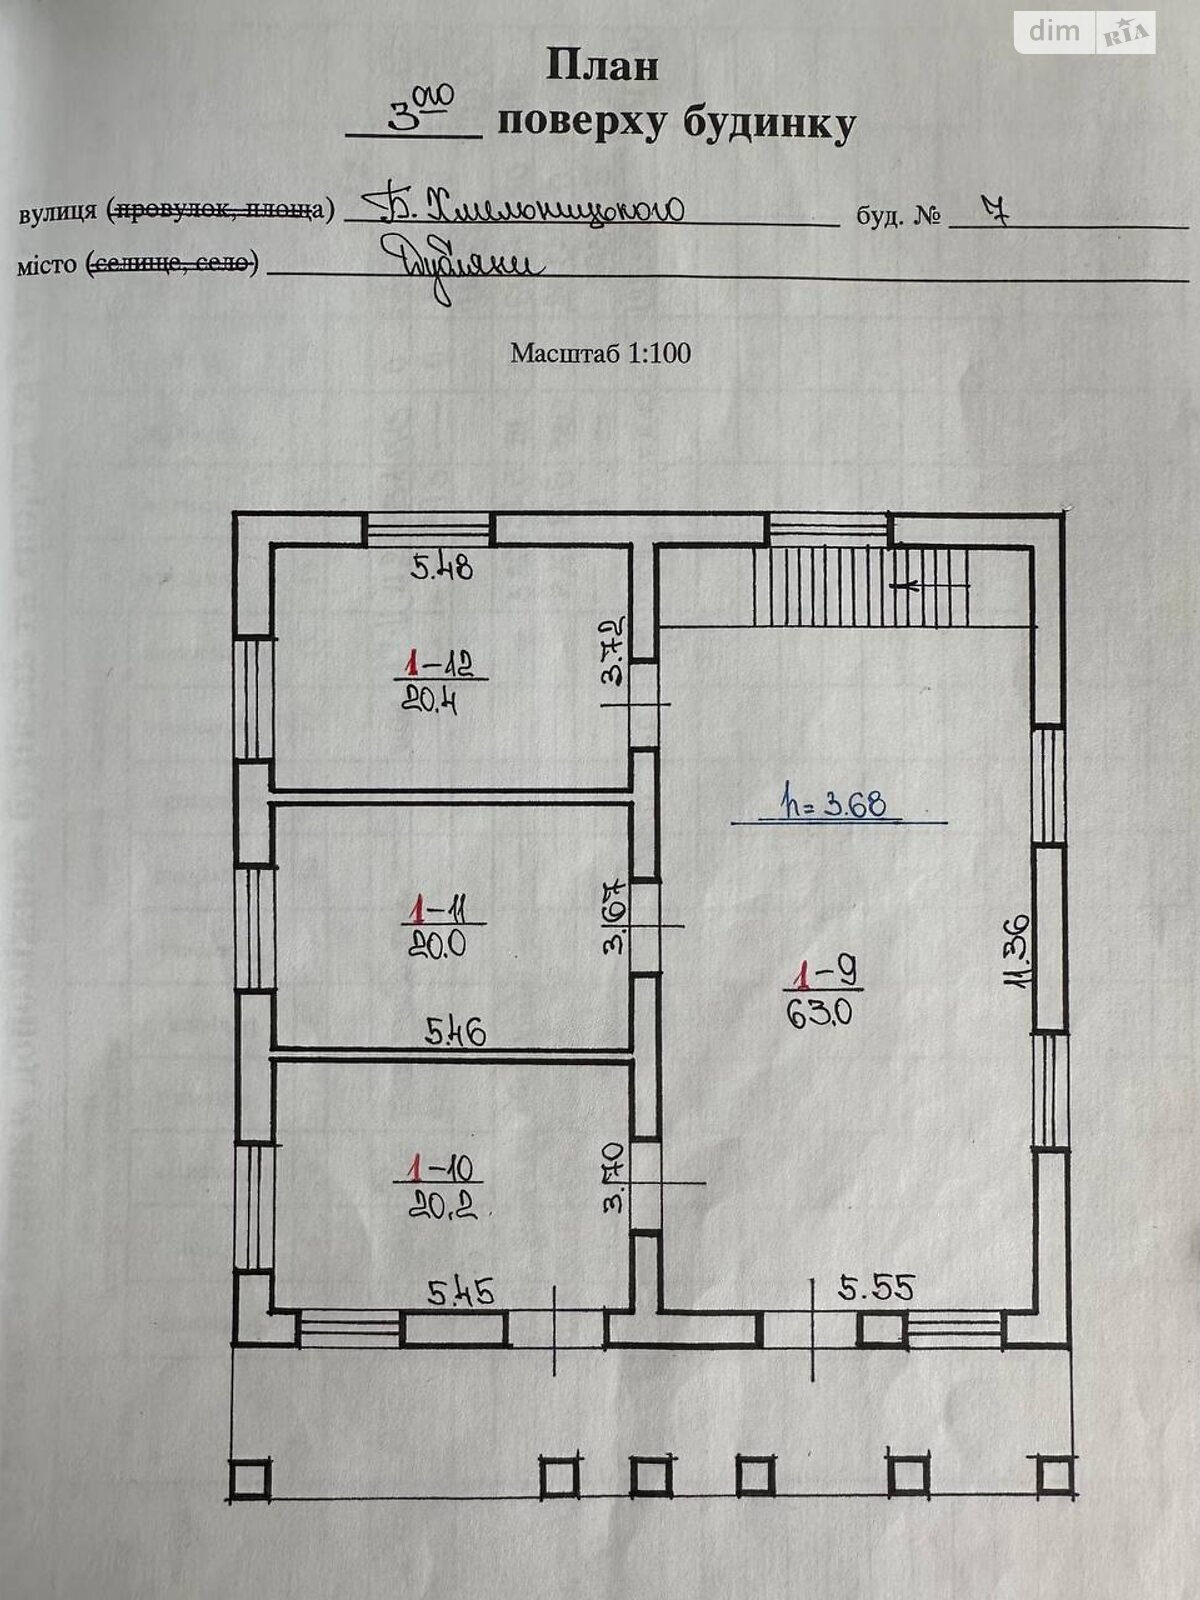 dim RIA
План
3ого поверху будинку
вулиця (провулок, площа) Б. Хмельницького буд. № 7
місто (селище, село) Дубляни
Масштаб 1:100
5.48
1-12
20.4
3.72
h= 3.68
1-11
20.0
3.67
5.46
1-9
63.0
11.36
1-10
20.2
3.70
5.45
5.55